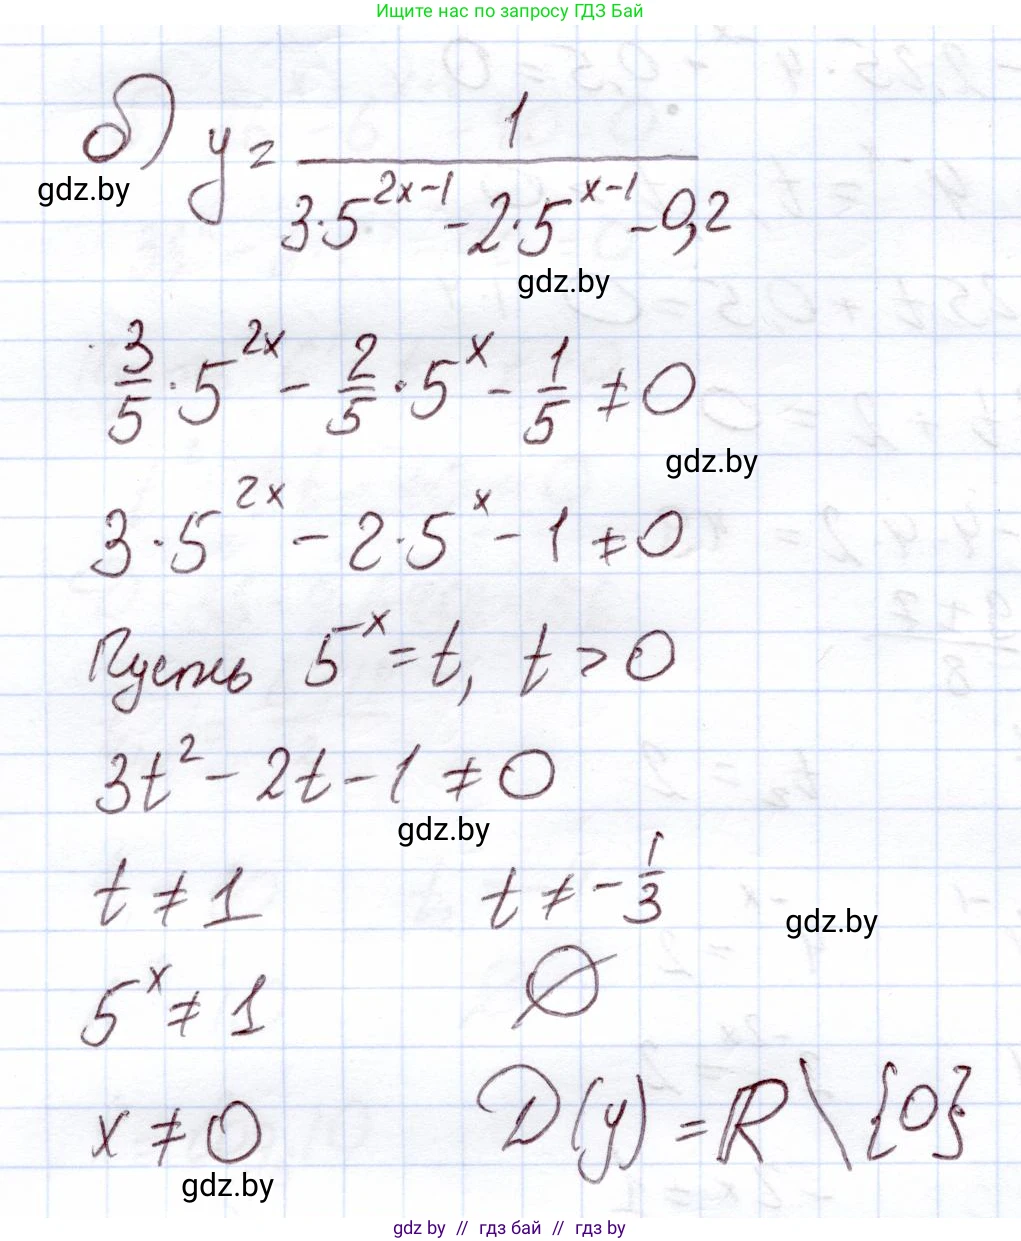 Ищите нас по запросу ГДЗ Бай
б) y = 1 / (3·5^(2x-1) - 2·5^(x-1) - 0,2)
gdz.by
gdz.by
3/5 · 5^(2x) - 2/5 · 5^x - 1/5 ≠ 0
gdz.by
3·5^(2x) - 2·5^x - 1 ≠ 0
Пусть 5^(-x) = t, t > 0
3t² - 2t - 1 ≠ 0
gdz.by
t ≠ 1 t ≠ -1/3
gdz.by
5^x ≠ 1 ∅
x ≠ 0 D(y) = R \ {0}
gdz.by
gdz.by // гдз бай // gdz.by